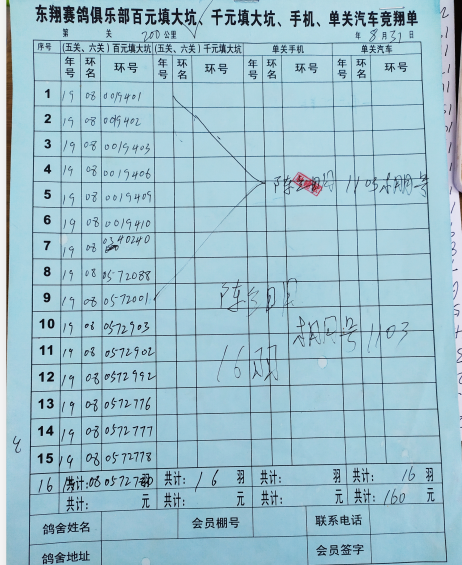 东翔赛鸽俱乐部百元填大坑、千元填大坑、手机、单关汽车竞翔单
第 关 200公里 年 8月31日
序号 (五关、六关)百元填大坑 (五关、六关)千元填大坑 单关手机 单关汽车
年号 环名 环号 年号 环名 环号 年号 环名 环号 年号 环名 环号
1 19 08 0019401
2 19 08 0019402
3 19 08 0019403
4 19 08 0019406
陈 1103棚号
5 19 08 0019409
6 19 08 0019410
7 19 08 0340240
8 19 08 0572088
9 19 08 0572001
陈
10 19 08 0572903
棚号1103
11 19 08 0572902
16羽
12 19 08 0572992
13 19 08 0572776
14 19 08 0572777
15 19 08 0572778
16 19 08 羽 共计: 16 羽 共计: 羽 共计: 16 羽
共计: 元 共计: 元 共计: 元 共计: 160 元
鸽舍姓名 会员棚号 联系电话
鸽舍地址 会员签字